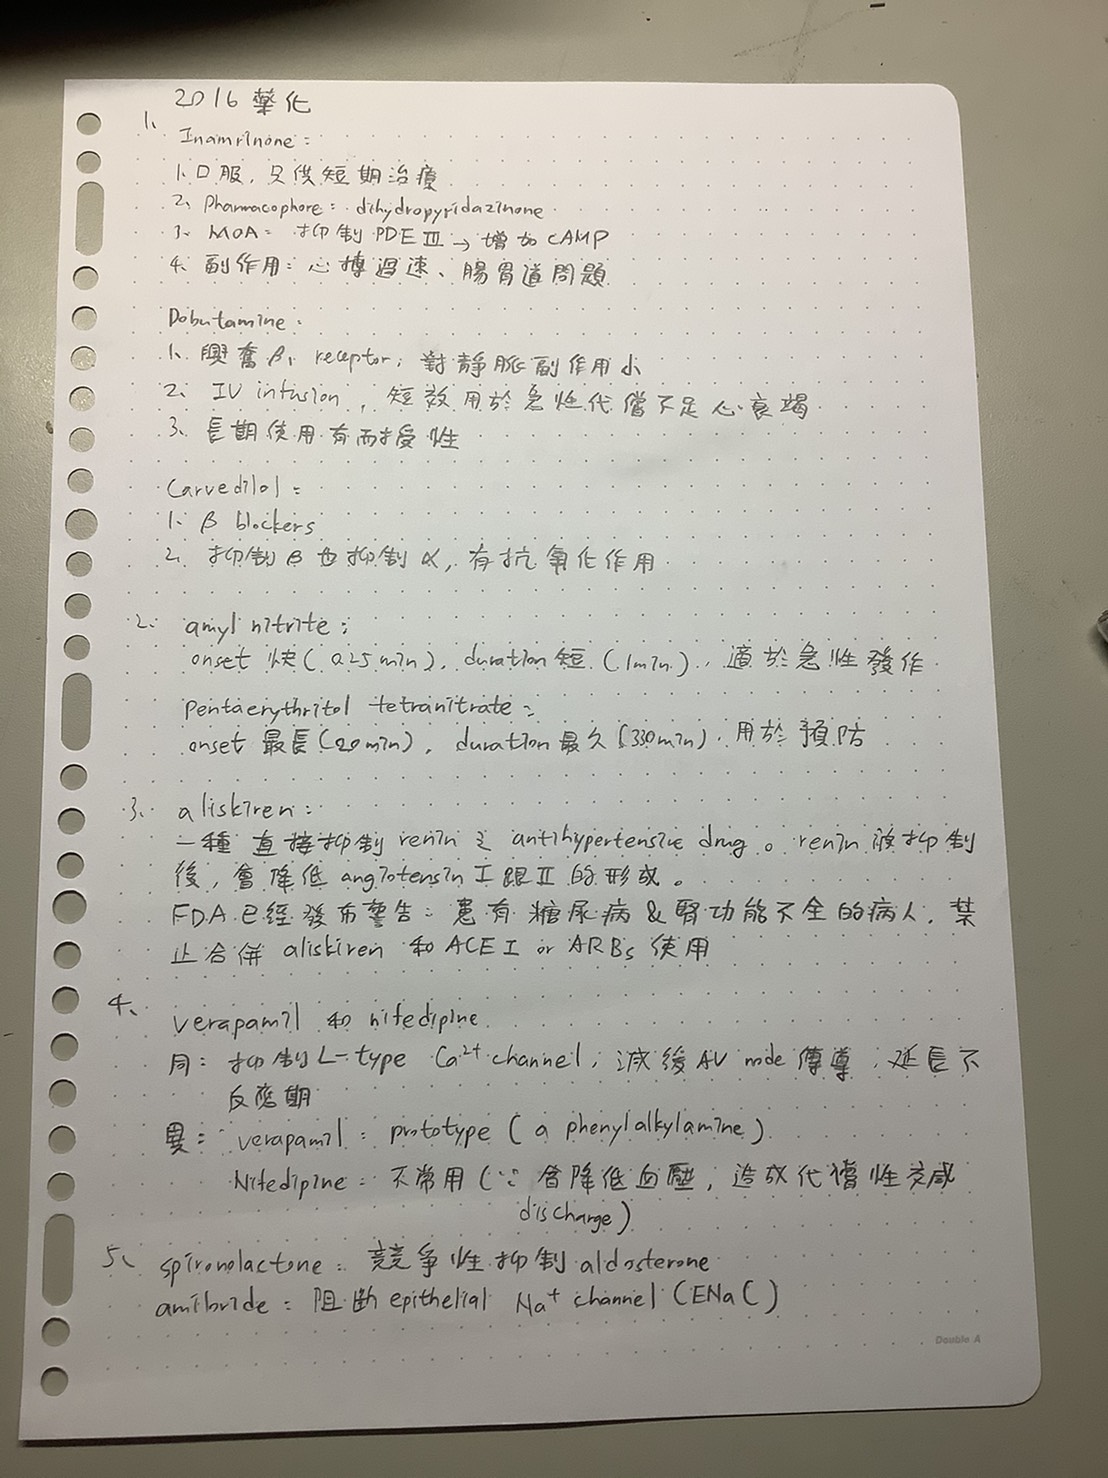 2016 藥化
1、
Inamrinone：
1、口服，只供短期治療
2、Pharmacophore：dihydropyridazinone
3、MOA：抑制 PDE Ⅲ → 增加 cAMP
4、副作用：心搏過速、腸胃道問題
Dobutamine：
1、興奮 β1 receptor，對靜脈副作用小
2、IV infusion，短效用於急性代償不足心衰竭
3、長期使用有耐受性
Carvedilol：
1、β blockers
2、抑制 β 也抑制 α，有抗氧化作用
2、amyl nitrite：
onset 快(0.25 min)，duration 短(1min)，適於急性發作
pentaerythritol tetranitrate：
onset 最長(20min)，duration 最久(330min)，用於預防
3、aliskiren：
一種直接抑制 renin 之 antihypertensive drug。renin 被抑制
後，會降低 angiotensin Ⅰ 跟 Ⅱ 的形成。
FDA 已經發布警告：患有糖尿病 & 腎功能不全的病人，禁
止合併 aliskiren 和 ACEI or ARBs 使用
4、
verapamil 和 nifedipine
同：抑制 L-type Ca2+ channel，減緩 AV node 傳導，延長不
反應期
異：verapamil：prototype (a phenylalkylamine)
Nifedipine：不常用 (∵ 會降低血壓，造成代償性交感
discharge)
5、spironolactone：競爭性抑制 aldosterone
amiloride：阻斷 epithelial Na+ channel (ENaC)
Double A